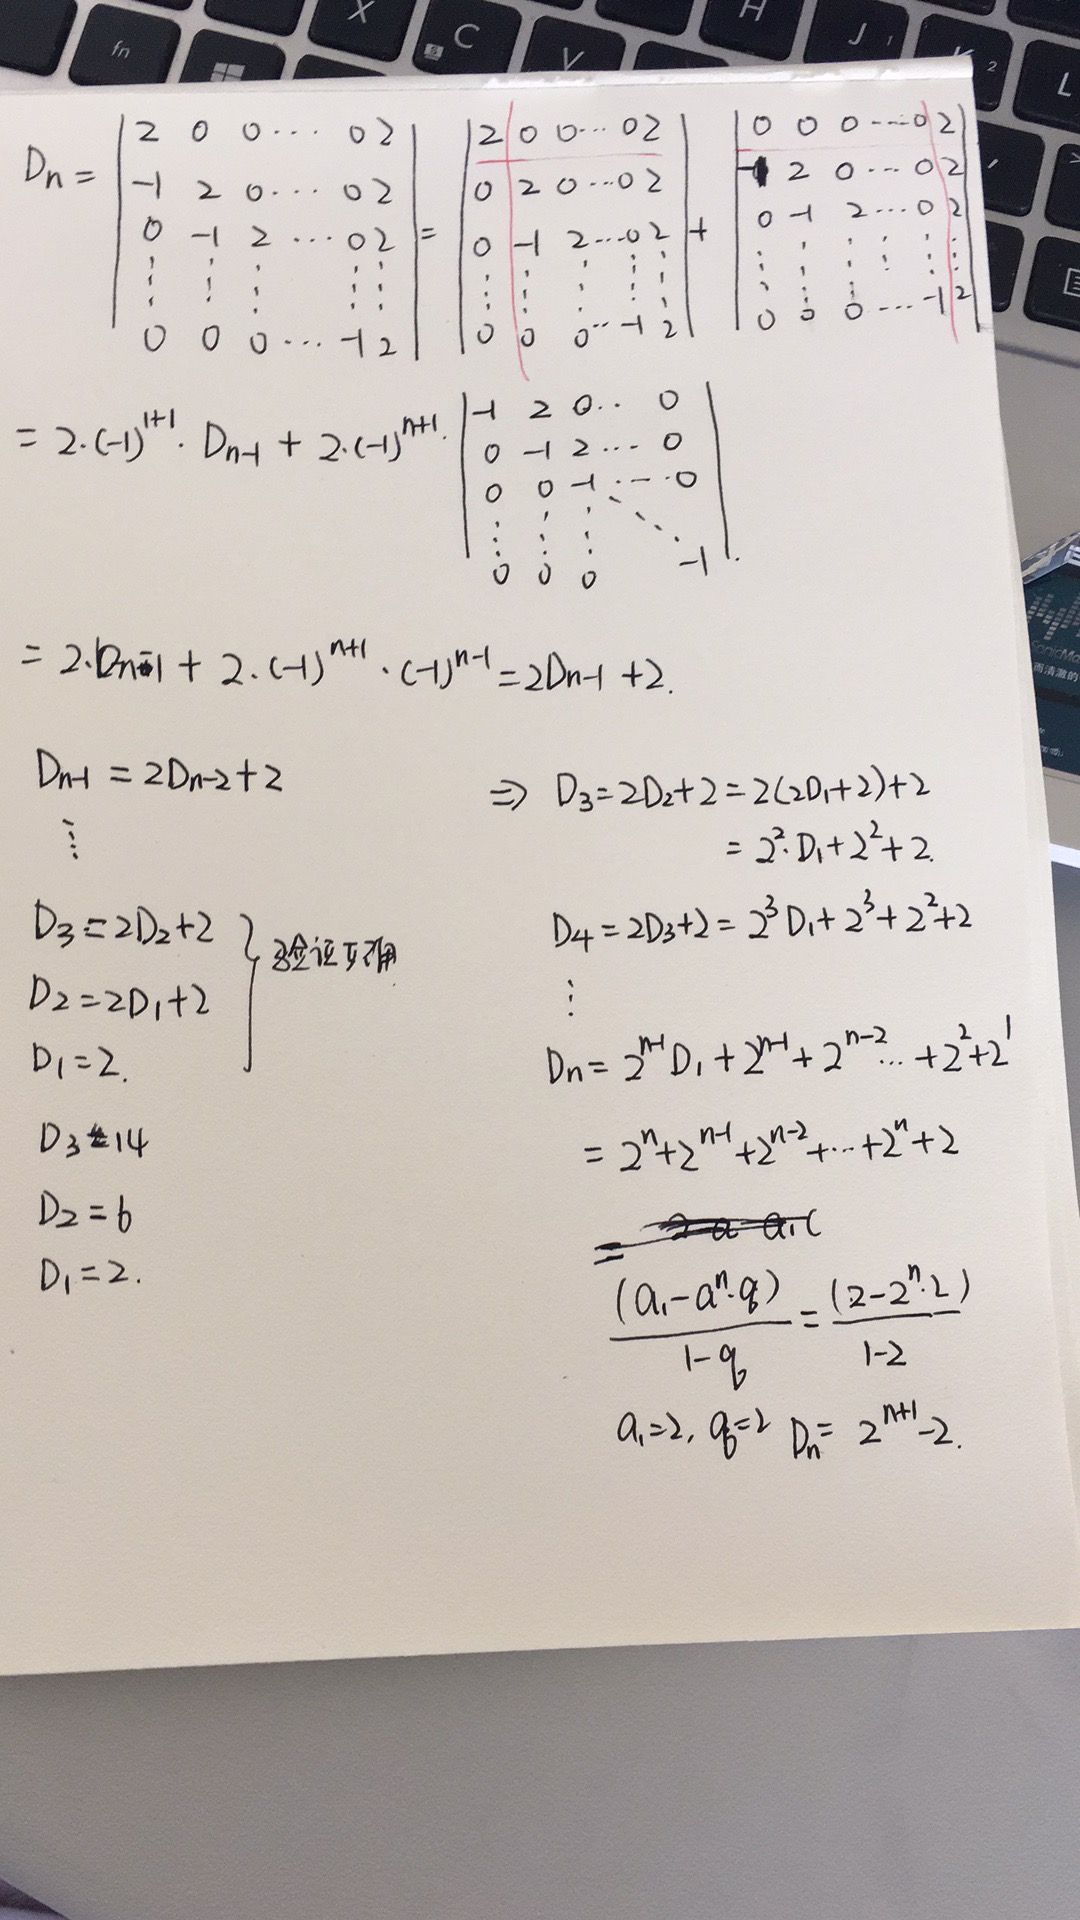 fn X C V H J 1 K 2 L
Dn = | 2 0 0 ··· 0 2 | = | 2 0 0 ··· 0 2 | + | 0 0 0 ··· 0 2 |
| -1 2 0 ··· 0 2 | | 0 2 0 ··· 0 2 | | -1 2 0 ··· 0 2 |
| 0 -1 2 ··· 0 2 | | 0 -1 2 ··· 0 2 | | 0 -1 2 ··· 0 2 |
| ⋮ ⋮ ⋮ ⋮ ⋮ | | ⋮ ⋮ ⋮ ⋮ ⋮ | | ⋮ ⋮ ⋮ ⋮ ⋮ ⋮ |
| 0 0 0 ··· -1 2 | | 0 0 0 ·· -1 2 | | 0 0 0 ···· -1 2 |
= 2·(-1)^{1+1}· D_{n-1} + 2·(-1)^{n+1}· | -1 2 0 ·· 0 |
| 0 -1 2 ··· 0 |
| 0 0 -1 ···· 0 |
| ⋮ ⋮ ⋮ ⋱ |
| 0 0 0 -1 |.
= 2·D_{n-1} + 2·(-1)^{n+1}·(-1)^{n-1} = 2D_{n-1} + 2.
D_{n-1} = 2D_{n-2} + 2
⋮
D3 = 2D2+2
D2 = 2D1+2
D1 = 2.
验证正确
D3 = 14
D2 = 6
D1 = 2.
⇒ D3 = 2D2+2 = 2(2D1+2)+2
= 2^2·D1+2^2+2.
D4 = 2D3+2 = 2^3D1+2^3+2^2+2
⋮
Dn = 2^{n-1}D1+2^{n-1}+2^{n-2}···+2^2+2^1
= 2^n+2^{n-1}+2^{n-2}+···+2^n+2
=
(a1-a^n·q)/(1-q) = (2-2^n·2)/(1-2)
a1=2, q=2 Dn = 2^{n+1}-2.